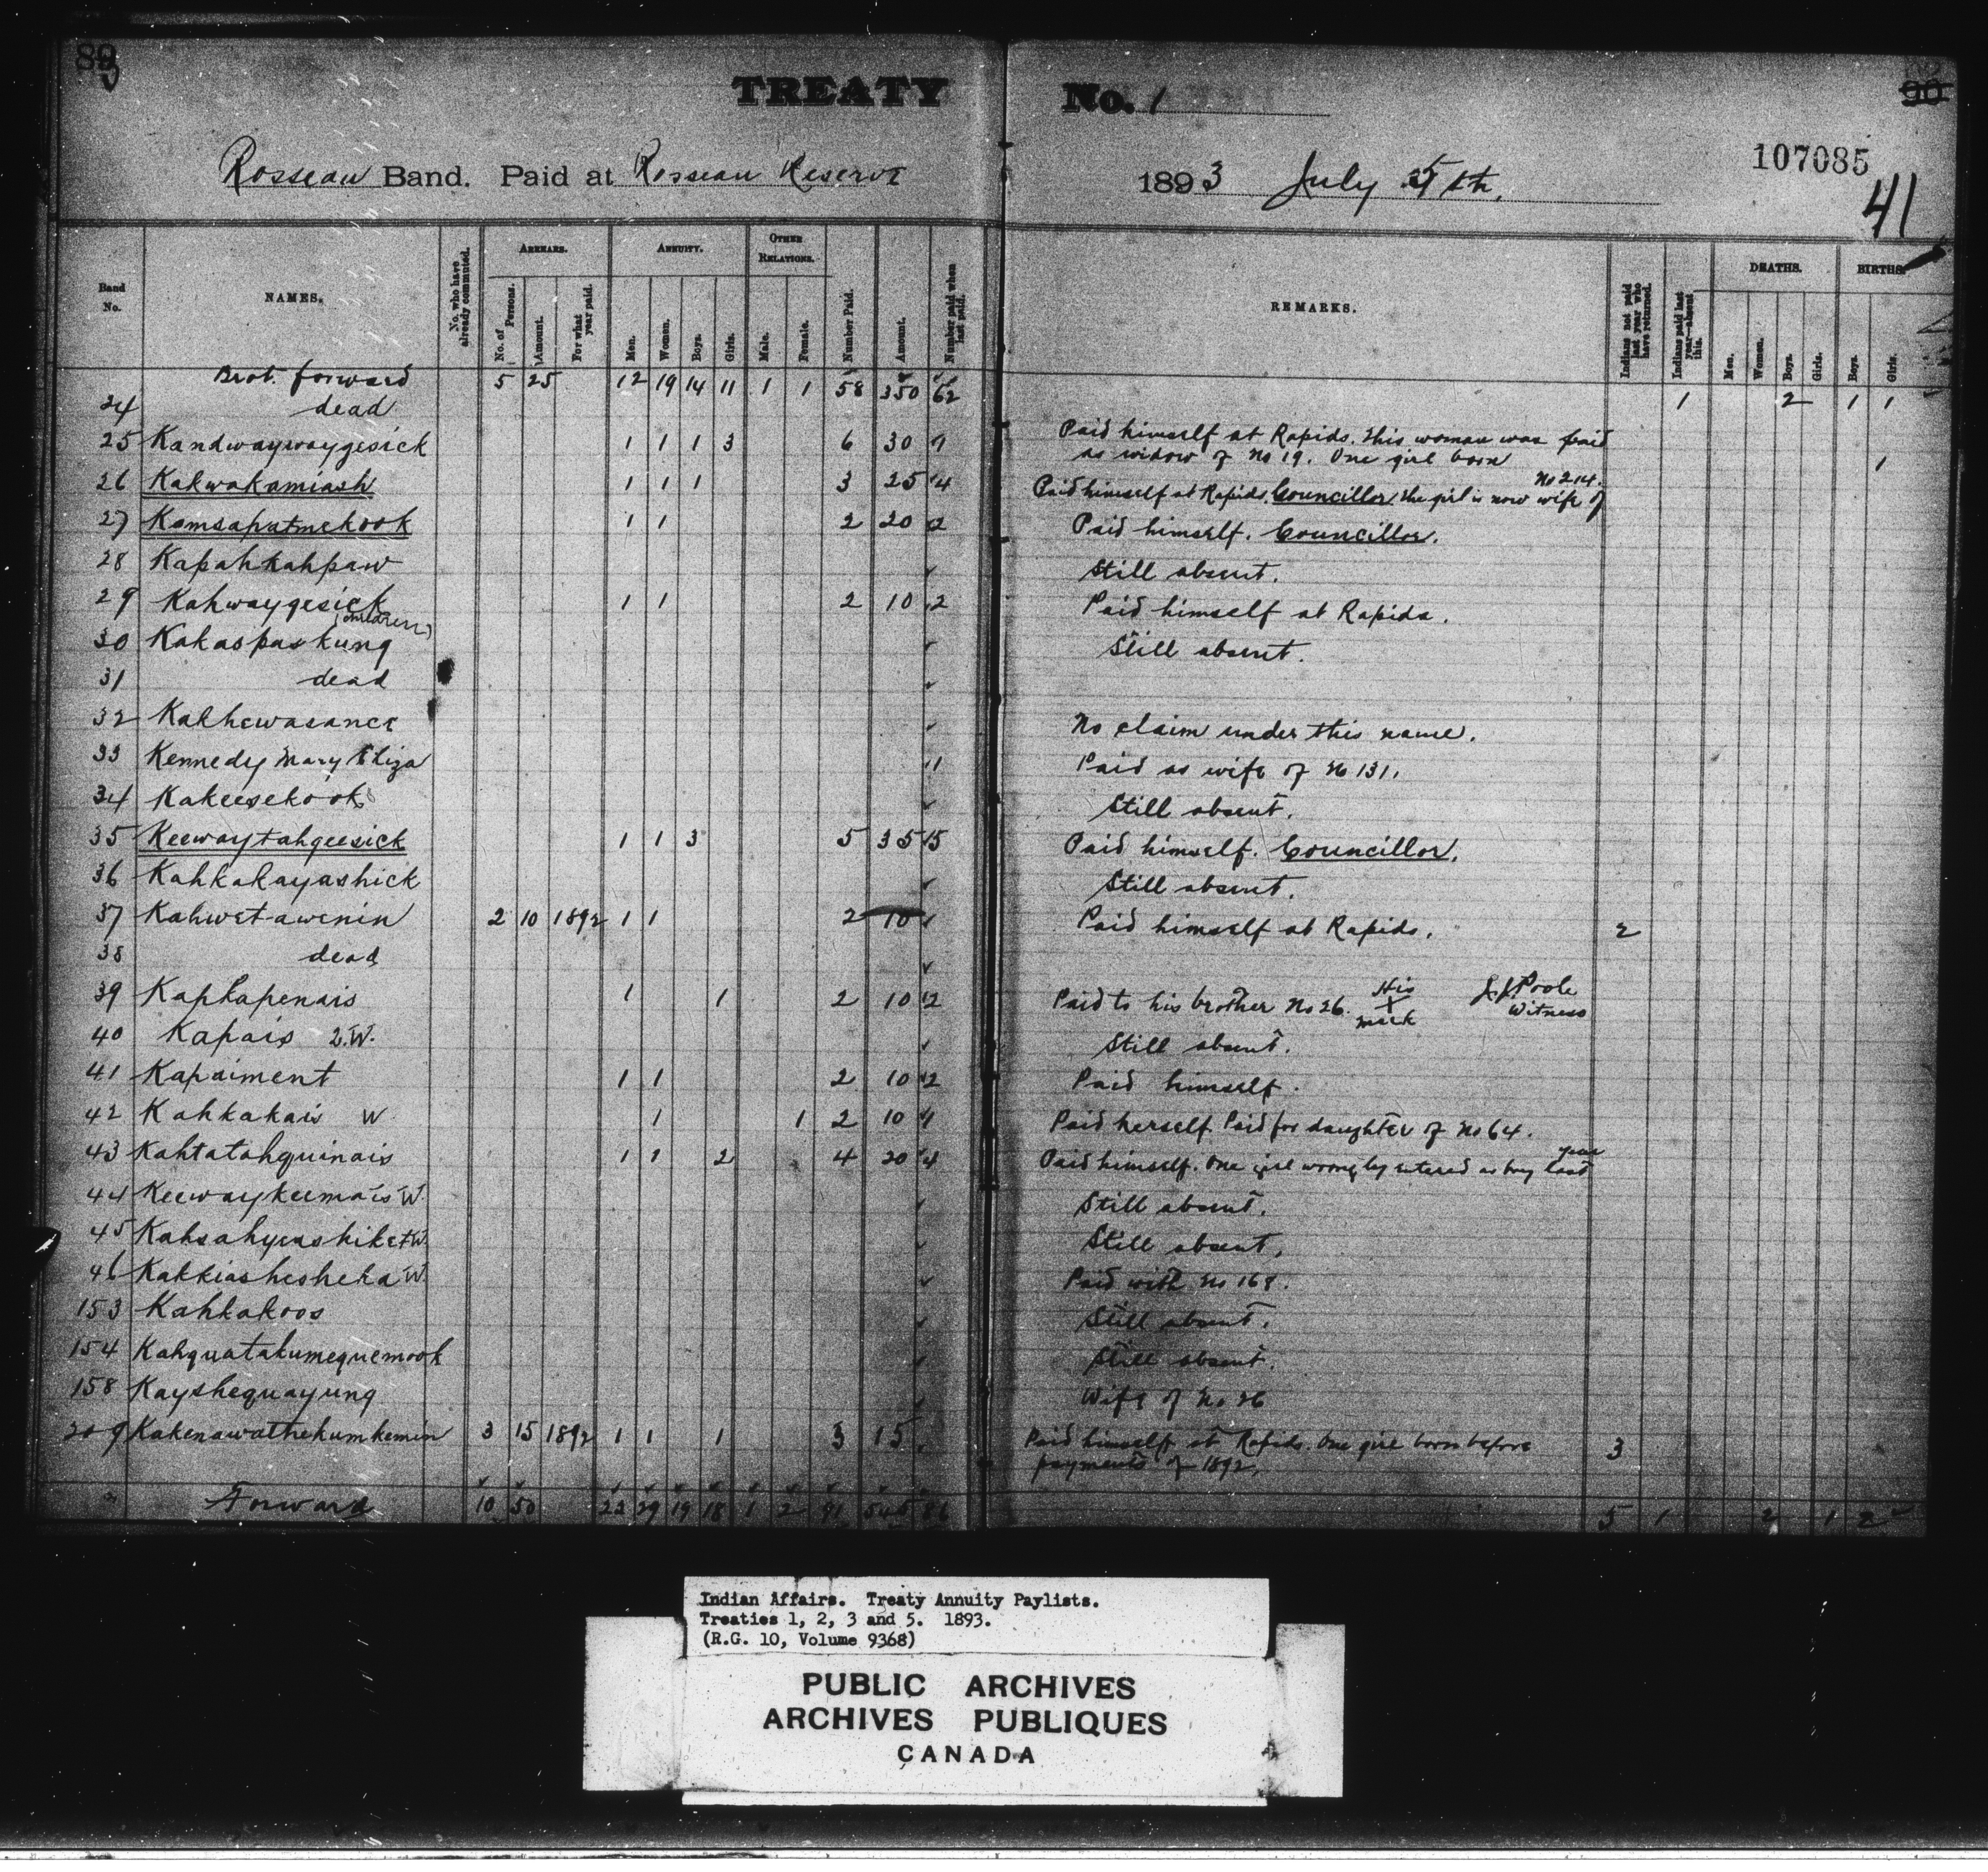 89
TREATY No. 1
90
107085
41
Rosseau Band. Paid at Rosseau Reserve 1893 July 5th.
Band No. NAMES. No. who have already commuted. ARREARS. No. of Persons. Amount. For what year paid. ANNUITY. Men. Women. Boys. Girls. OTHER RELATIONS. Male. Female. Number Paid. Amount. Number paid when last paid. REMARKS. Indians not paid last year who have returned. Indians paid last year—absent this. DEATHS. Men. Women. Boys. Girls. BIRTHS. Boys. Girls.
Brot. forward 5 25 12 19 14 11 1 1 58 350 62 1 2 1 1
24 dead
25 Kandwaywaygesick 1 1 1 3 6 30 7 Paid himself at Rapids. This woman was paid
as widow of No 19. One girl born 1
26 Kakwakamiash 1 1 1 3 25 4 Paid himself at Rapids. Councillor. The girl is now wife of No 214.
27 Kamsapatmekook 1 1 2 20 2 Paid himself. Councillor.
28 Kapahkahpaw Still absent.
29 Kahwaygesick 1 1 2 10 2 Paid himself at Rapids.
30 Kakaspaskung (children) Still absent.
31 dead
32 Kakhewasance No claim under this name.
33 Kennedy Mary Eliza 1 Paid as wife of No 131.
34 Kakeesekook Still absent.
35 Keewaytahgeesick 1 1 3 5 35 5 Paid himself. Councillor.
36 Kahkakayashick Still absent.
37 Kahwet-awenin 2 10 1892 1 1 2 10 Paid himself at Rapids. 2
38 dead
39 Kaphapenais 1 1 2 10 2 Paid to his brother No 26. His X mark Poole Witness
40 Kapais 2.W. Still absent.
41 Kapaiment 1 1 2 10 2 Paid himself.
42 Kahkakais W 1 1 2 10 1 Paid herself. Paid for daughter of No 64.
43 Kahtatahquinais 1 1 2 4 20 4 Paid himself. One girl wrongly entered as boy last year
44 Keewaykeemais W. Still absent.
45 Kahsahyeashiket W. Still absent.
46 Kakkiashesheka W. Paid with No 168.
153 Kahkakoos Still absent.
154 Kahquatakumequemook Still absent.
158 Kayshequayung Wife of No 26
209 Kakenawathekumkemin 3 15 1892 1 1 1 3 15 Paid himself at Rapids. One girl born before
payments of 1892. 3
Forward 10 50 22 29 19 18 1 2 91 545 86 5 1 2 1 2
Indian Affairs. Treaty Annuity Paylists.
Treaties 1, 2, 3 and 5. 1893.
(R.G. 10, Volume 9368)
PUBLIC ARCHIVES
ARCHIVES PUBLIQUES
CANADA